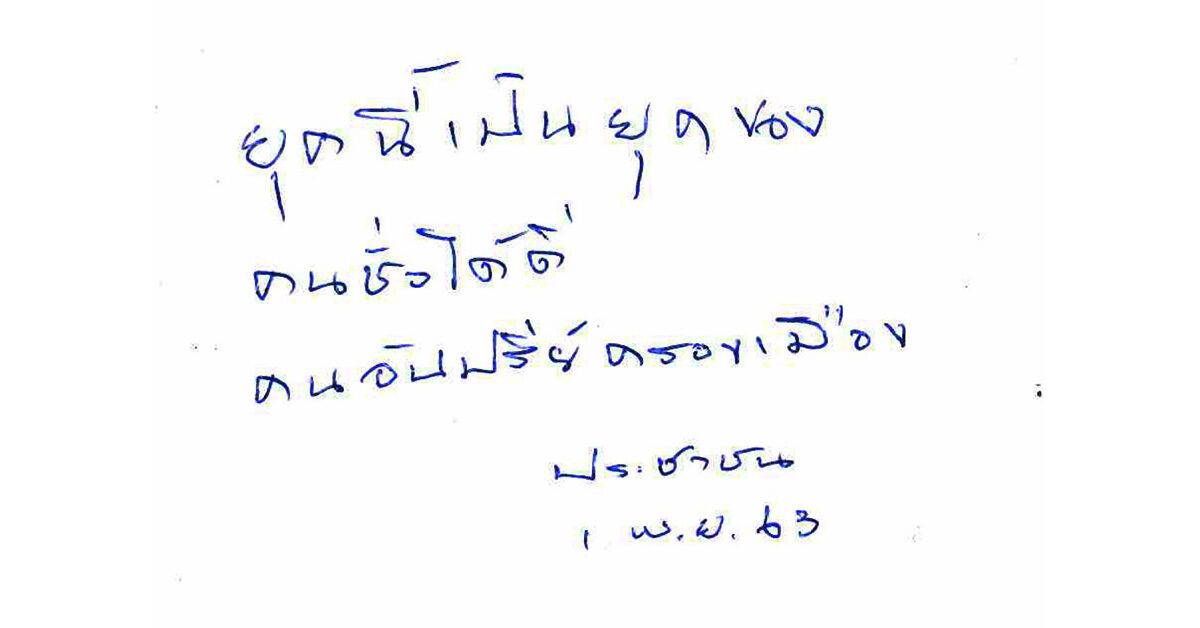 ยุคนี้เป็นยุคของ
คนชั่วได้ดี
คนอันปรีย์ครองเมือง
ประชาชน
1 พ.ย. 63